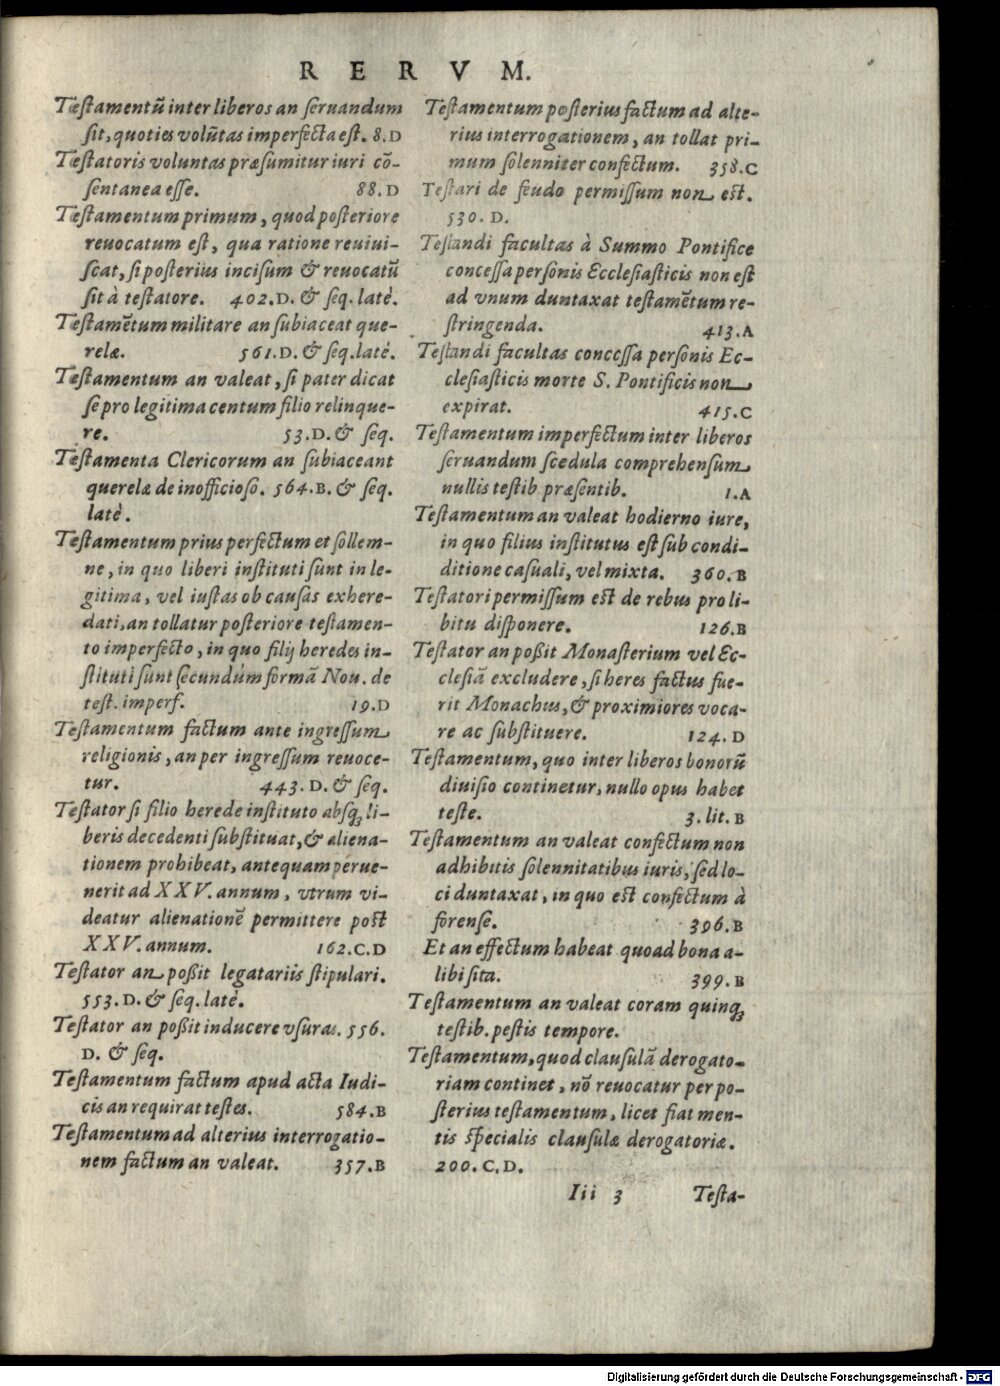 RERVM.
Tæstamentũ inter liberos an seruandum
sit, quoties volũtas imperfecta est. 8.D
Tæstatoris voluntas præsumitur iuri cõ-
sentanea esse. 88.D
Tæstamentum primum, quod posteriore
reuocatum est, qua ratione reuiui-
scat, si posterius incisum & reuocatũ
sit à testatore. 402.D. & seq. latè.
Testamẽtum militare an subiaceat que-
relæ. 561.D. & seq. latè.
Testamentum an valeat, si pater dicat
se pro legitima centum filio relinque-
re. 53.D. & seq.
Testamenta Clericorum an subiaceant
querelæ de inofficioso. 564.B. & seq.
latè.
Testamentum prius perfectum et sollem-
ne, in quo liberi instituti sunt in le-
gitima, vel iustas ob causas exhere-
dati, an tollatur posteriore testamen-
to imperfecto, in quo filij heredes in-
stituti sunt secundùm formã Nou. de
test. imperf. 19.D
Testamentum factum ante ingressum
religionis, an per ingressum reuoce-
tur. 443.D. & seq.
Testator si filio herede instituto absq; li-
beris decedenti substituat, & aliena-
tionem prohibeat, antequam perue-
nerit ad XXV. annum, vtrum vi-
deatur alienationẽ permittere post
XXV. annum. 162.C.D
Testator an poßit legatariis stipulari.
553.D. & seq. latè.
Testator an poßit inducere vsuras. 556.
D. & seq.
Testamentum factum apud acta Iudi-
cis an requirat testes. 584.B
Testamentum ad alterius interrogatio-
nem factum an valeat. 357.B
Testamentum posterius factum ad alte-
rius interrogationem, an tollat pri-
mum solenniter confectum. 358.C
Testari de feudo permissum non est.
530.D.
Testandi facultas à Summo Pontifice
concessa personis Ecclesiasticis non est
ad vnum duntaxat testamẽtum re-
stringenda. 413.A
Testandi facultas concessa personis Ec-
clesiasticis morte S. Pontificis non
expirat. 415.C
Testamentum imperfectum inter liberos
seruandum scedula comprehensum
nullis testib. præsentib. 1.A
Testamentum an valeat hodierno iure,
in quo filius institutus est sub condi-
ditione casuali, vel mixta. 360.B
Testatori permissum est de rebus pro li-
bitu disponere. 126.B
Testator an poßit Monasterium vel Ec-
clesiã excludere, si heres factus fue-
rit Monachus, & proximiores voca-
re ac substituere. 124.D
Testamentum, quo inter liberos bonorũ
diuisio continetur, nullo opus habet
teste. 3.lit.B
Testamentum an valeat confectum non
adhibitis solennitatibus iuris, sed lo-
ci duntaxat, in quo est confectum à
forense. 396.B
Et an effectum habeat quoad bona a-
libi sita. 399.B
Testamentum an valeat coram quinq;
testib. pestis tempore.
Testamentum, quod clausulã derogato-
riam continet, nõ reuocatur per po-
sterius testamentum, licet fiat men-
tis specialis clausulæ derogatoriæ.
200.C.D.
Iii 3 Testa-
Digitalisierung gefördert durch die Deutsche Forschungsgemeinschaft - DFG